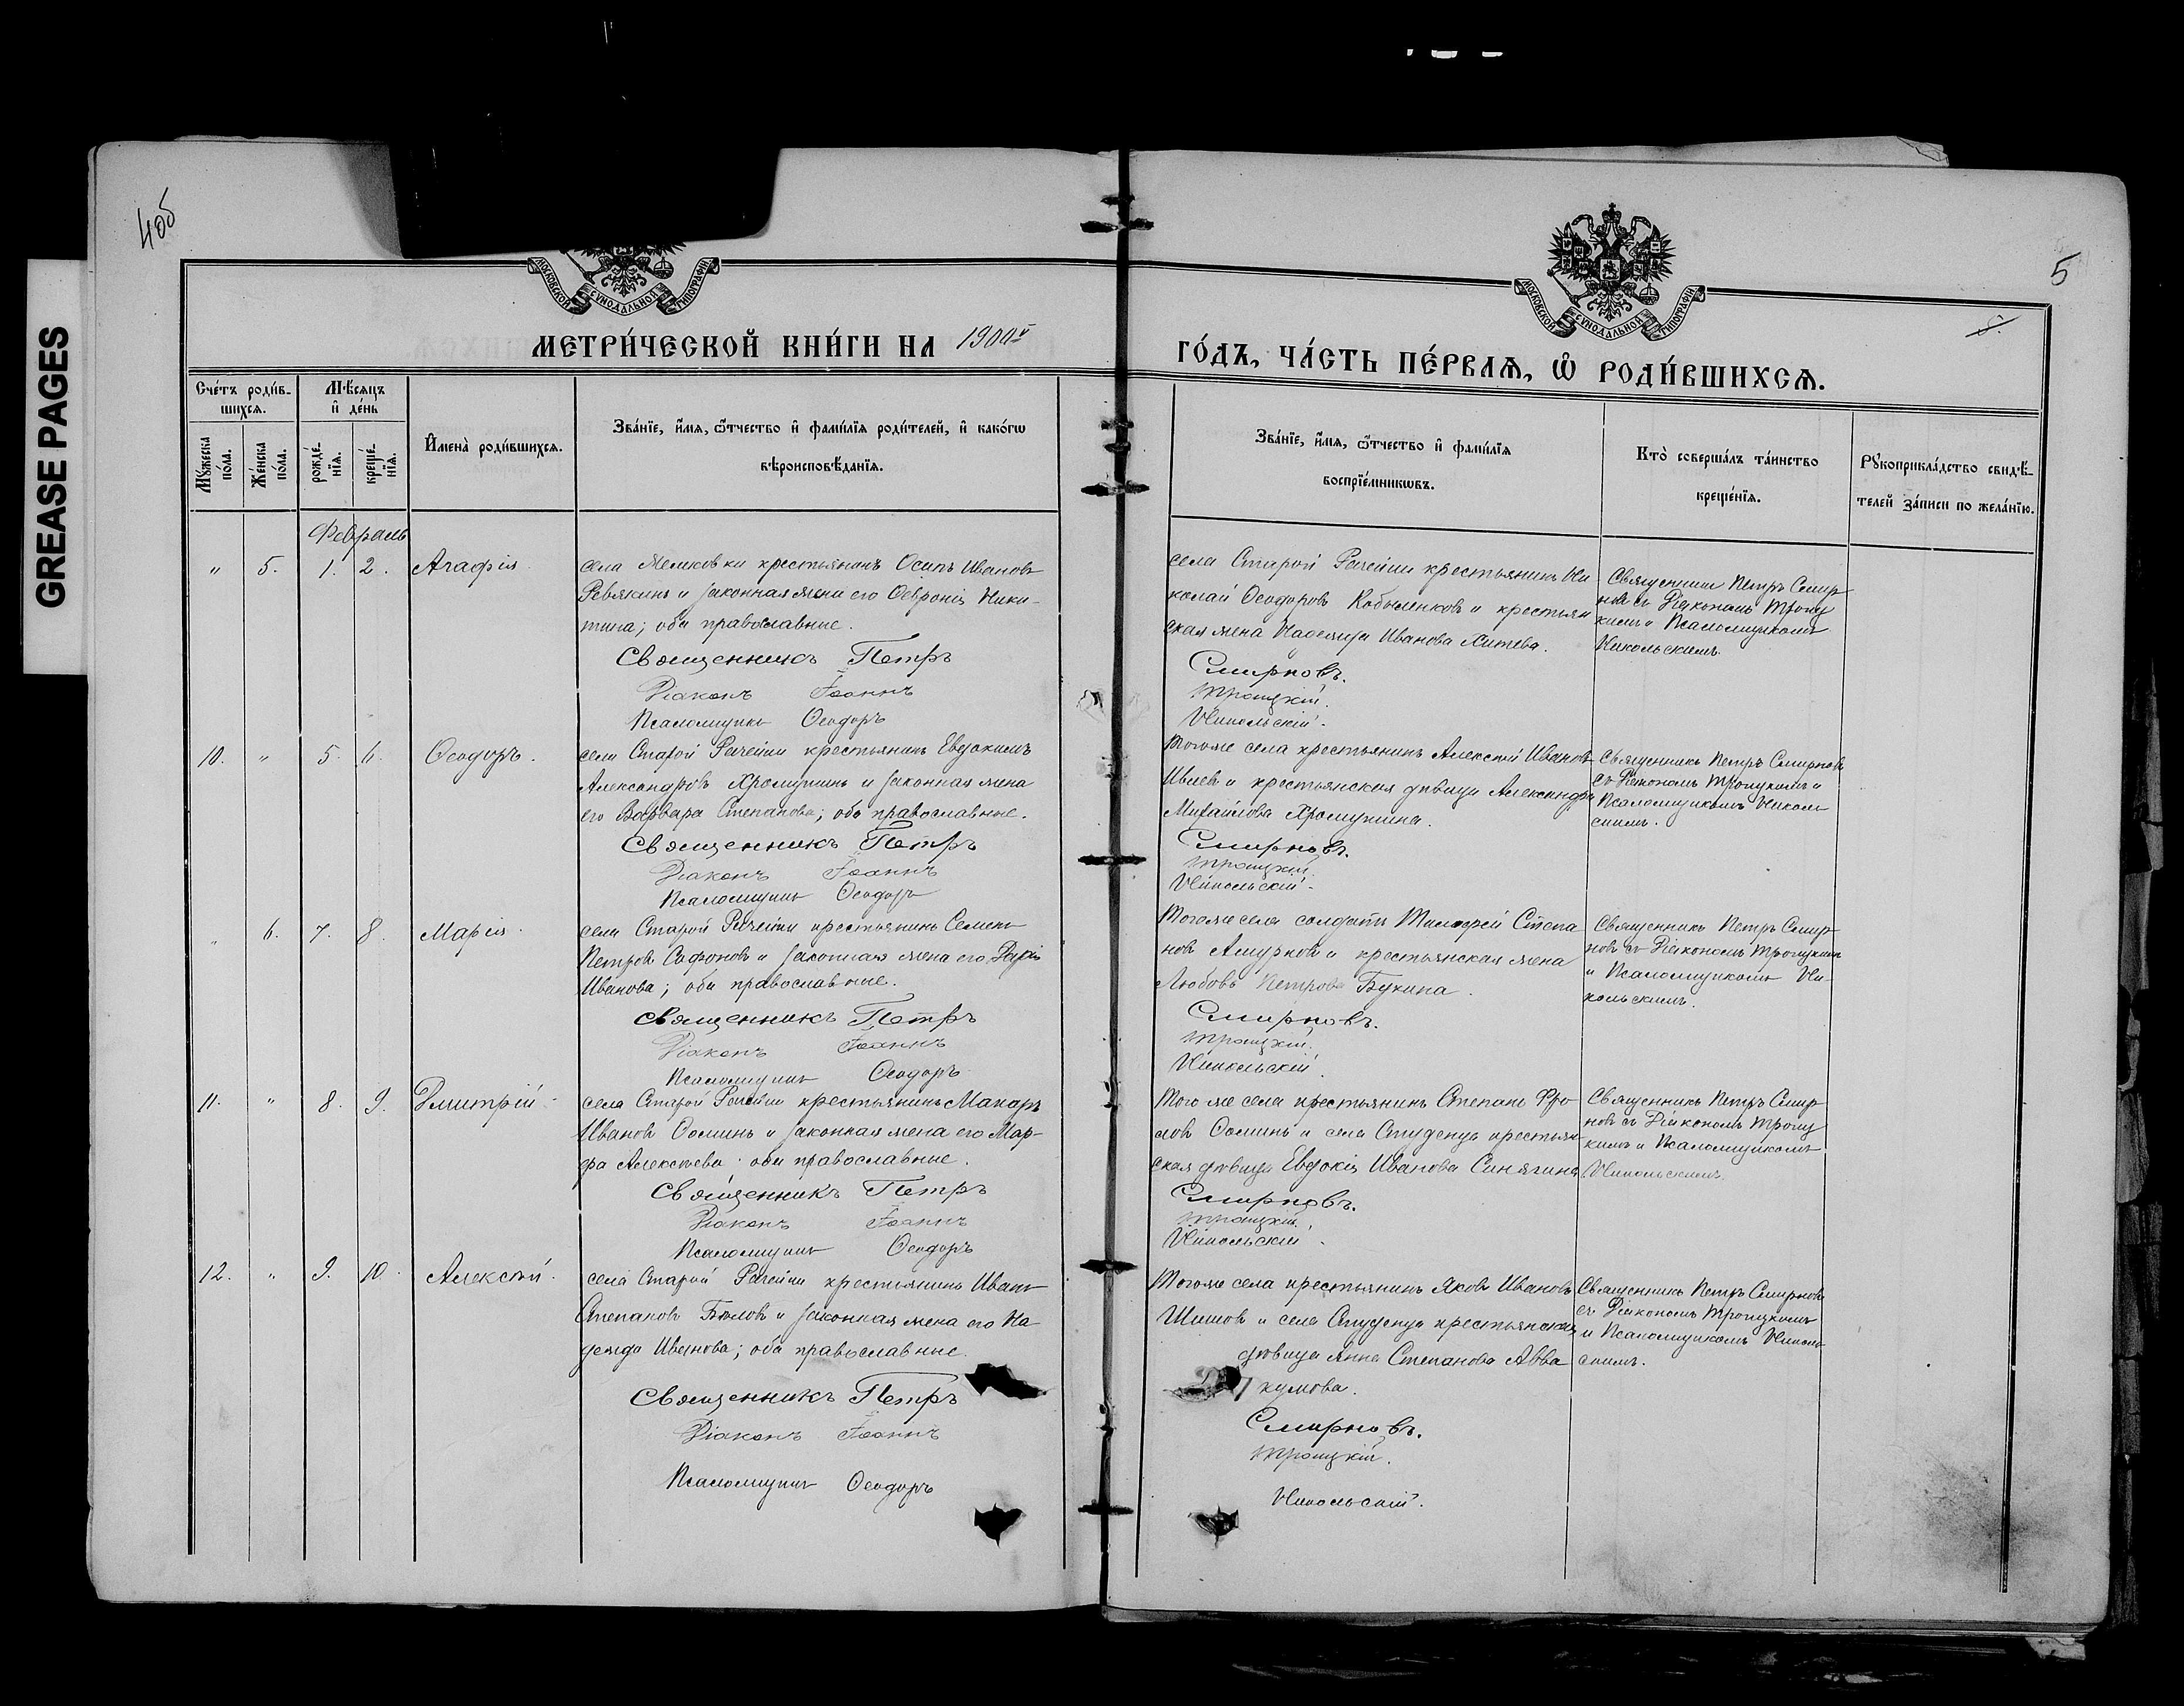 GREASE PAGES
4об
5
5.
МОСКОВСКОЙ СѴНОДАЛЬНОЙ ТИПОГРАФІИ
МОСКОВСКОЙ СѴНОДАЛЬНОЙ ТИПОГРАФІИ
МЕТРИ́ЧЕСКОЙ КНИ́ГИ НА 1900й
ГО́ДЪ, ЧА́СТЬ ПЕ́РВАѦ, Ѽ РОДИ́ВШИХСѦ.
Сче́тъ роди́в-
шихсѧ.
Мꙋ́жеска по́ла.
Же́нска по́ла.
Мѣ́сѧцъ
и҆ де́нь
рожде́-нїѧ.
креще́-нїѧ.
И҆мена̀ роди́вшихсѧ.
Зва́нїе, и҆́мѧ, ѻ҆́тчество и҆ фамі́лїѧ роди́телей, и҆ како́гѡ
вѣроисповѣ́данїѧ.
Зва́нїе, и҆́мѧ, ѻ҆́тчество и҆ фамі́лїѧ
воспрїе́мникѡвъ.
Кто̀ соверша́лъ та́инство
креще́нїѧ.
Рꙋкоприкла́дство свидѣ́-
телей за́писи по жела́нїю.
Февраль
" 5. 1. 2. Агафія
села Меликовки крестьянинъ Осипъ Ивановъ
Ревякинъ и законная жена его Ѳевронія Ники-
тина; оба православные.
Священникъ Петръ
Діаконъ Іоаннъ
Псаломщикъ Ѳеодоръ
села Старой Рачейки крестьянинъ Ни
колай Ѳеодоровъ Кобыленковъ и крестьян
ская жена Надежда Иванова Житева.
Смирновъ.
Троицкій.
Никольскій.
Священникъ Петръ Смир
новъ съ Діакономъ Троиц
кимъ и Псаломщикомъ
Никольскимъ.
10. " 5. 6. Ѳеодоръ.
села Старой Рачейки крестьянинъ Евдокимъ
Александровъ Хромушинъ и законная жена
его Варвара Степанова; оба православные.
Священникъ Петръ
Діаконъ Іоаннъ
Псаломщикъ Ѳеодоръ
Того же села крестьянинъ Алексѣй Ивановъ
Ивлевъ и крестьянская дѣвица Александра
Михайлова Хромушина.
Смирновъ.
Троицкій.
Никольскій.
Священникъ Петръ Смирновъ
съ Діакономъ Троицкимъ и
Псаломщикомъ Николь
скимъ.
" 6. 7. 8. Марія.
села Старой Рачейки крестьянинъ Семенъ
Петровъ Сафоновъ и законная жена его Дарія
Иванова; оба православные.
Священникъ Петръ
Діаконъ Іоаннъ
Псаломщикъ Ѳеодоръ
Того же села солдатъ Тимофей Степа
новъ Амурковъ и крестьянская жена
Любовь Петрова Букина.
Смирновъ.
Троицкій.
Никольскій
Священникъ Петръ Смир
новъ съ Діакономъ Троицкимъ
и Псаломщикомъ Ни-
кольскимъ.
11. " 8. 9. Дмитрій
села Старой Рачейки крестьянинъ Макаръ
Ивановъ Ѳоминъ и законная жена его Мар-
фа Алексѣева; оба православные.
Священникъ Петръ
Діаконъ Іоаннъ
Псаломщикъ Ѳеодоръ
Того же села крестьянинъ Степанъ Фро
ловъ Ѳоминъ и села Студенца крестьян
ская дѣвица Евдокія Иванова Синягина
Смирновъ.
Троицкій.
Никольскій.
Священникъ Петръ Смир
новъ съ Діакономъ Троиц
кимъ и Псаломщикомъ
Никольскимъ.
12. " 9. 10. Алексѣй.
села Старой Рачейки крестьянинъ Иванъ
Степановъ Бѣловъ и законная жена его На
дежда Иванова; оба православные.
Священникъ Петръ
Діаконъ Іоаннъ
Псаломщикъ Ѳеодоръ
Того же села крестьянинъ Яковъ Ивановъ
Шишовъ и села Студенца крестьянская
дѣвица Анна Степанова Авва
кумова.
Смирновъ.
Троицкій.
Никольскій.
Священникъ Петръ Смирновъ
съ Діакономъ Троицкимъ
и Псаломщикомъ Николь
скимъ.